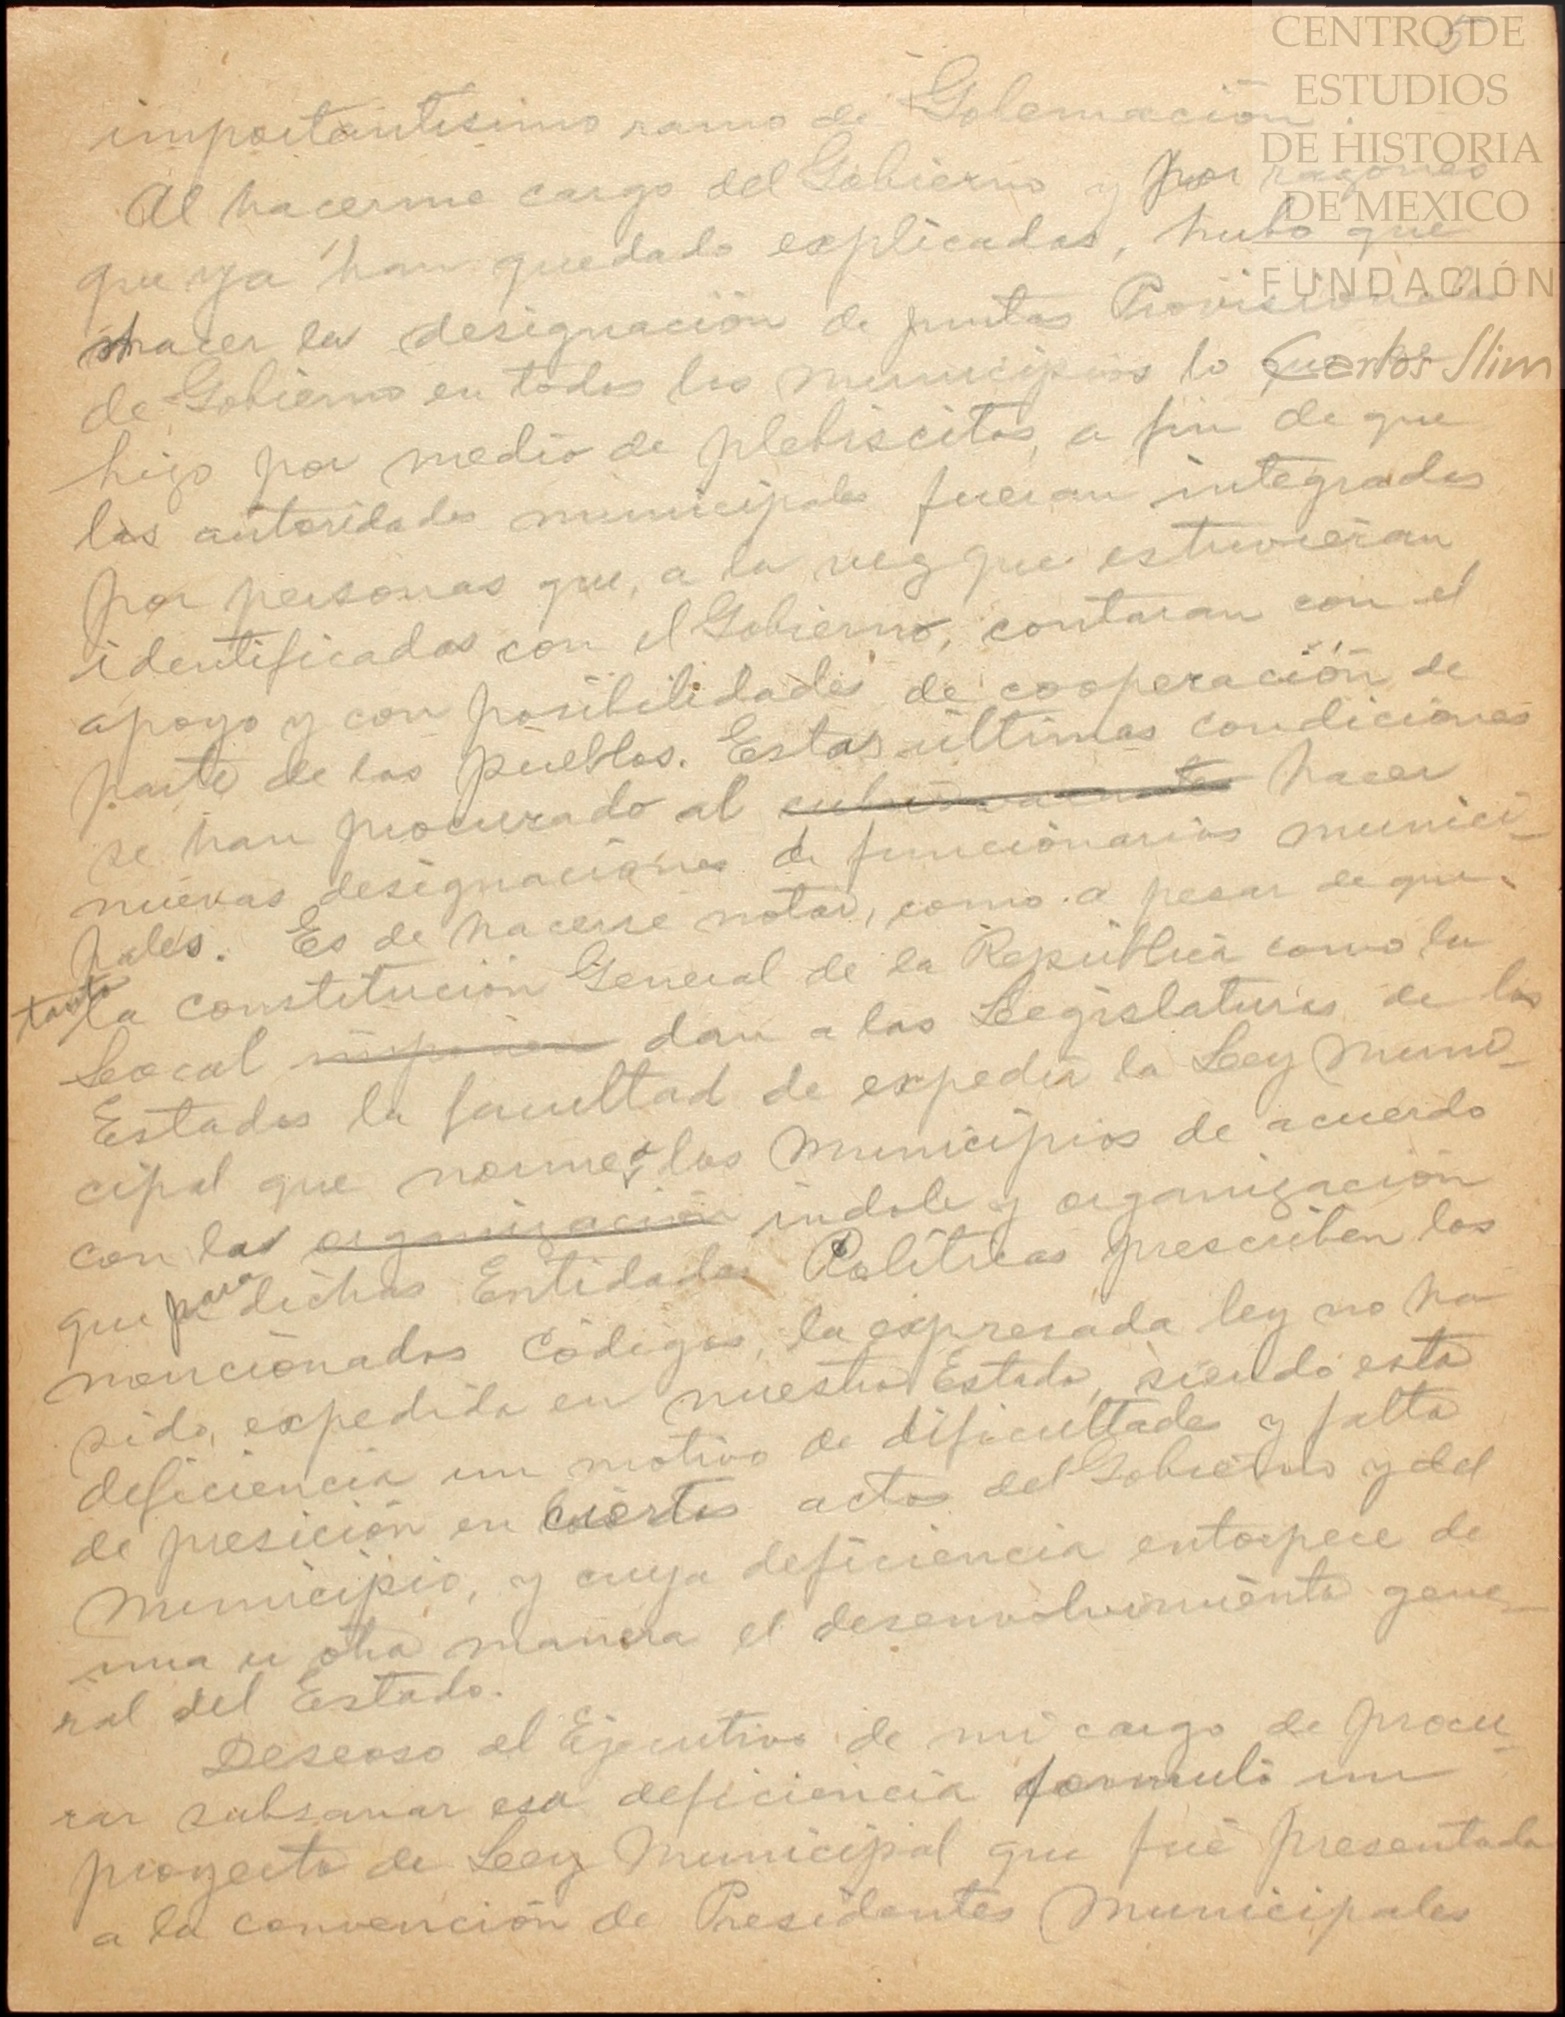 5
CENTRO DE
ESTUDIOS
DE HISTORIA
DE MEXICO
FUNDACIÓN
Carlos Slim
importantisimo ramo de Gobernación.
Al hacerme cargo del Gobierno y por razones
que ya han quedado explicadas, hubo que
hacer la designación de juntas Provisionales
de Gobierno en todos los municipios lo que se
hizo por medio de plebiscitos, a fin de que
las autoridades municipales fueran integradas
por personas que, a la vez que estuvieran
identificadas con el Gobierno, contaran con el
apoyo y con posibilidades de cooperación de
parte de los pueblos. Estas últimas condiciones
se han procurado al hacer
nuevas designaciones de funcionarios munici-
pales. Es de hacerse notar, como a pesar de que
tanto la constitución General de la República como la
Local dan a las Legislaturas de los
Estados la facultad de expedir la Ley Muni-
cipal que norme a los Municipios de acuerdo
con la organización indole y organización
que para dichas Entidades Políticas prescriben los
mencionados Códigos, la expresada ley no ha
sido, expedida en nuestro Estado, siendo esta
deficiencia un motivo de dificultade y falta
de presición en ciertos actos del Gobierno y del
Municipio, y cuya deficiencia entorpece de
una u otra manera el desenvolvimiento gene-
ral del Estado.
Deseoso el Ejecutivo de mi cargo de procu-
rar subsanar esa deficiencia formuló un
proyecto de Ley Municipal que fué presentado
a la convención de Presidentes Municipales